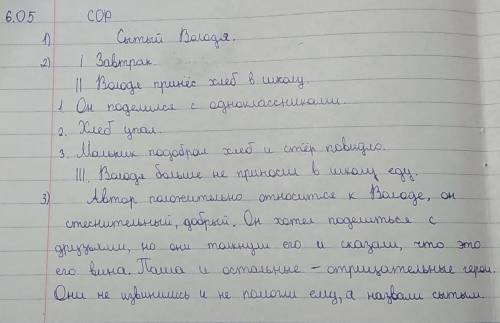 6.05 СОР
1) Сытый Володя.
2) I Завтрак.
II Володя принёс хлеб в школу.
1. Он поделился с одноклассниками.
2. Хлеб упал.
3. Мальчик подобрал хлеб и стёр повидло.
III. Володя больше не приносил в школу еду.
3) Автор положительно относится к Володе, он
стеснительный, добрый. Он хотел поделиться с
друзьями, но они толкнули его и сказали, что это
его вина. Паша и остальные - отрицательные герои.
Они не извинились и не помогли ему, а назвали сытым.